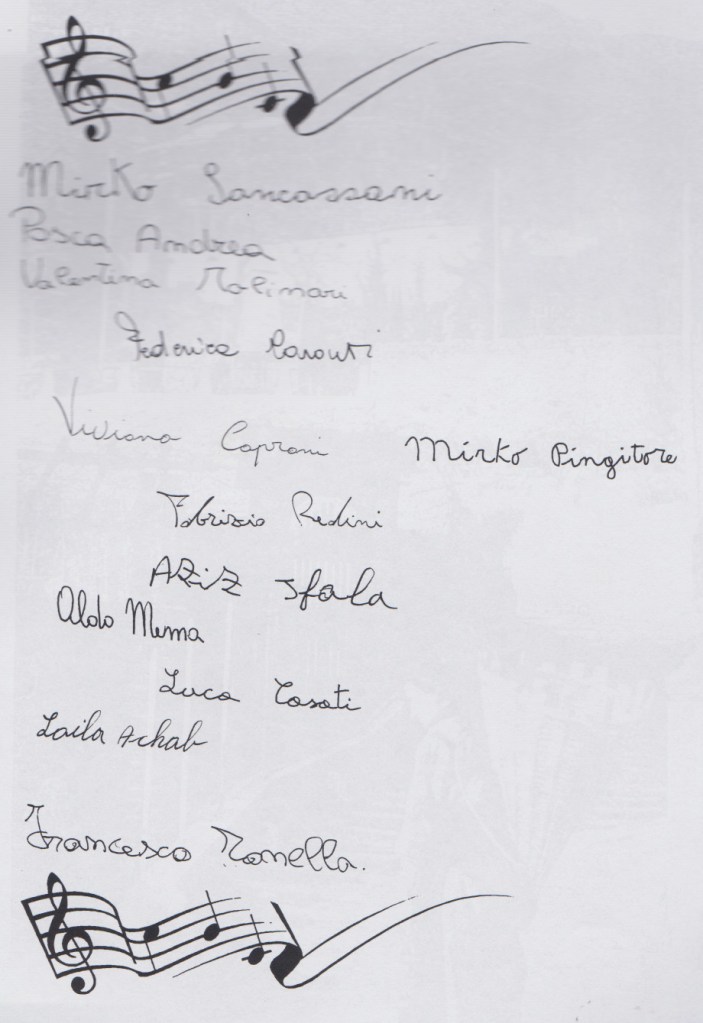 Mirko Lancassani
Posca Andrea
Valentina Molinari
Federica
Viviana Caproni
Mirko Pingitore
Fabrizio Redini
AZiZ Sfala
Aldo Memma
Luca Casati
Laila Achab
Francesco Monella.